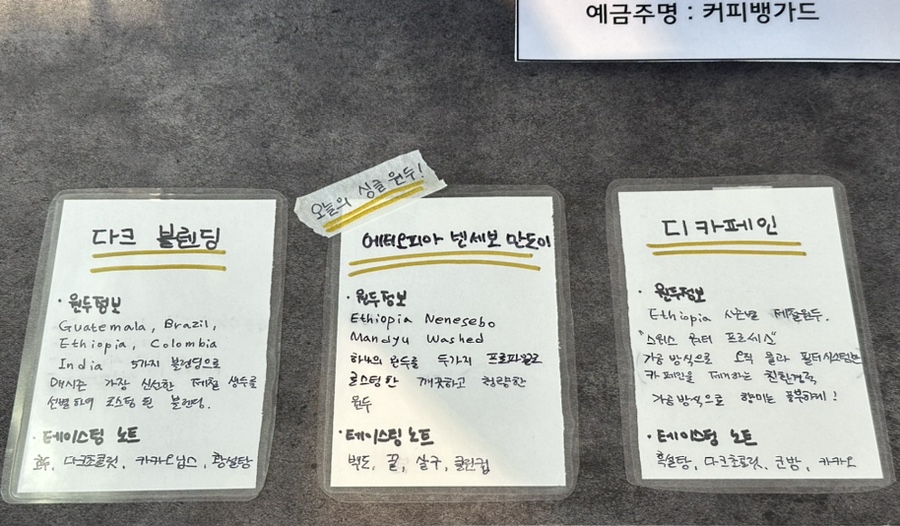 예금주명 : 커피뱅가드
오늘의 싱글 원두!
다크 블렌딩
· 원두정보
Guatemala, Brazil,
Ethiopia, Colombia
India 5가지 블렌딩으로
매시즌 가장 신선한 제철 생두를
선별하여 로스팅 된 블렌딩.
· 테이스팅 노트
호두, 다크초콜릿, 카카오닙스, 황설탕
에티오피아 넨세보 만두이
· 원두정보
Ethiopia Nenesebo
Mandyu Washed
하나의 원두를 두가지 프로파일로
로스팅한 깨끗하고 청량한
원두
· 테이스팅 노트
백도, 꿀, 살구, 클린컵
디카페인
· 원두정보
Ethiopia 시즌별 제철원두.
"스위스 워터 프로세스"
가공 방식으로 오직 물과 필터시스템만
카페인을 제거하는 친환경적
가공방식으로 향미는 풍부하게!
· 테이스팅 노트
흑설탕, 다크초콜릿, 군밤, 카카오